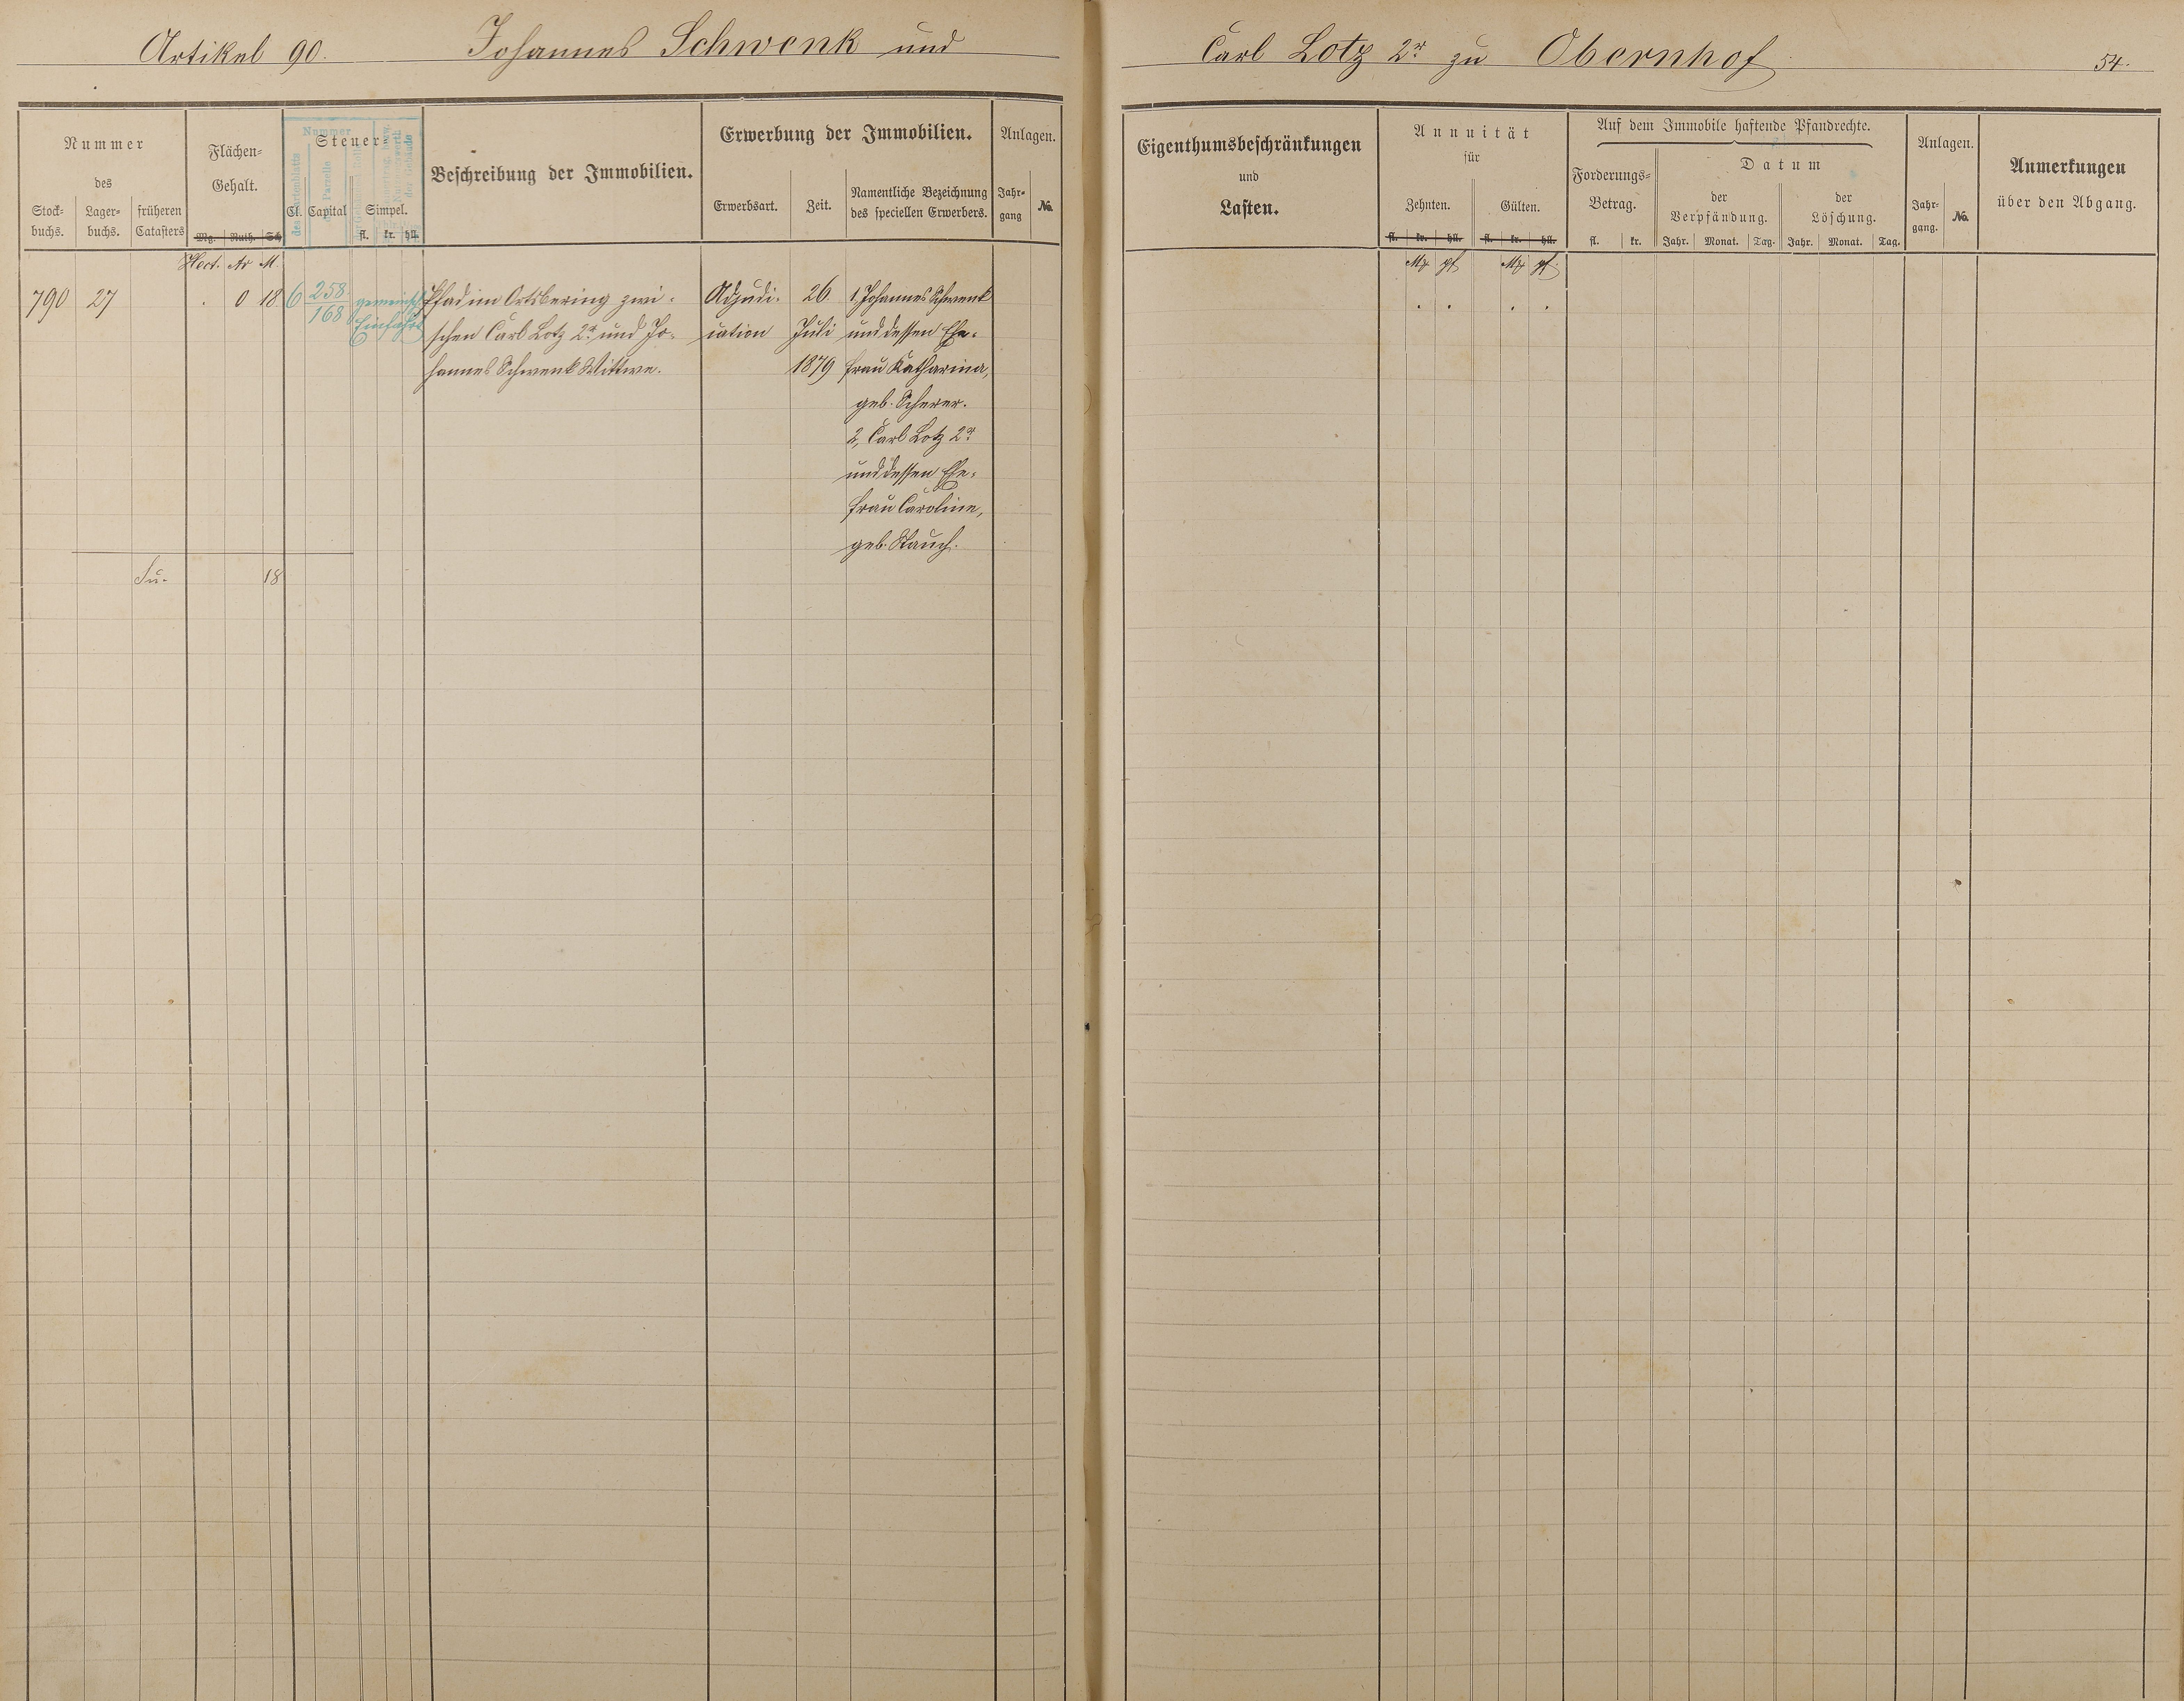 Artikel 90. Johannes Schwenk und
Carl Lotz 2r zu Obernhof 54.
Nummer
des
Stock-
buchs.
Lager-
buchs.
früheren
Catasters
Flächen-
Gehalt.
Mg. Ruth. Sch
Hect. Ar M.
Steuer
Nummer
des Kartenblatts
der Parzelle
Cl. Capital
Simpel.
fl. kr. hll.
Beschreibung der Immobilien.
Erwerbung der Immobilien.
Erwerbsart.
Zeit.
Namentliche Bezeichnung
des speciellen Erwerbers.
Anlagen.
Jahr-
gang
No.
790 27 . 0 18
6 258
168
gemeinsch.
Einfahrt
Pfad im Ortsbering zwi-
schen Carl Lotz 2r und Jo-
hannes Schwenk Wittwe.
Adjudi-
cation
26.
Juli
1879
1, Johannes Schwenk
und dessen Ehe-
frau Katharina,
geb. Scherer.
2, Carl Lotz 2r
und dessen Ehe-
frau Caroline,
geb. Stauch.
Su. 18
Eigenthumsbeschränkungen
und
Lasten.
Annuität
für
Zehnten.
Gülten.
fl. kr. hll. fl. kr. hll.
Mk pf Mk pf
. . . .
Auf dem Immobile haftende Pfandrechte.
Forderungs-
Betrag.
fl. kr.
Datum
der
Verpfändung.
der
Löschung.
Jahr. Monat. Tag. Jahr. Monat. Tag.
Anlagen.
Jahr-
gang.
No.
Anmerkungen
über den Abgang.